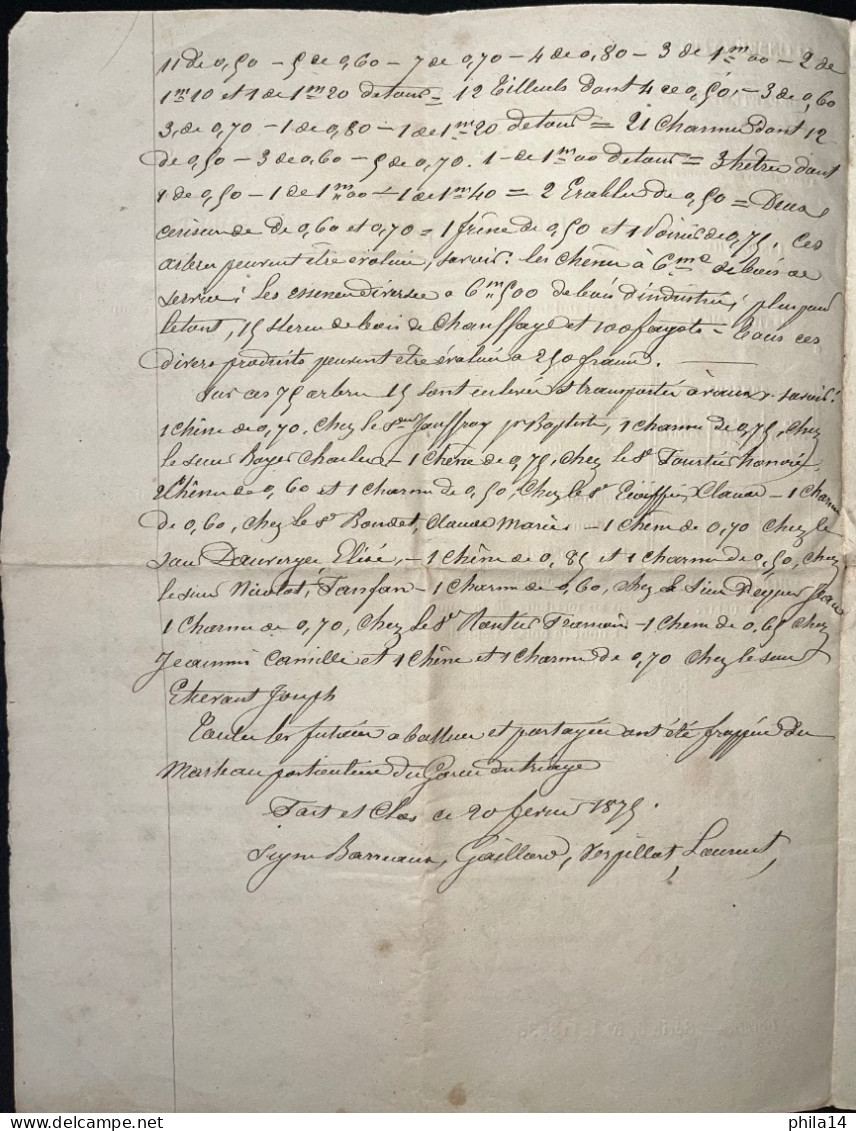 11 de 0,50 – 5 de 0,60 – 7 de 0,70 – 4 de 0,80 – 3 de 1m00 – 2 de
1m10 et 1 de 1m20 de tour = 12 Tilleuls dont 4 de 0,50, – 3 de 0,60
3, de 0,70 – 1 de 0,80 – 1 de 1m20 de tour = 21 Charmes dont 12
de 0,50 – 3 de 0,60 – 5 de 0,70. 1 – de 1m00 de tour = 3 hêtres dont
1 de 0,50 – 1 de 1m00 – 1 de 1m40 = 2 Erables de 0,50 = Deux
cerisiers de 0,60 et 0,70 = 1 frêne de 0,50 et 1 de 0,75. Ces
arbres peuvent être évalués, savoir: les chênes à 6 mc de bois de
service; les essences diverses à 6m500 de bois d'industrie; plus pour
le tout, 15 stères de bois de chauffage et 100 fagots – Tous ces
divers produits peuvent être évalués à 250 francs.
Sur ces 75 arbres 15 sont enlevés et transportés à savoir:
1 chêne de 0,70. chez le Sr Jauffroy Baptiste, 1 charme de 0,75, chez
le sieur Boyer Charles – 1 Chêne de 0,75, chez le Sr honoré
2 Chênes de 0,60 et 1 charme de 0,50, chez le Sr Claude – 1 charme
de 0,60, chez le Sr Boudet, Claude Marie – 1 chêne de 0,70 chez le
sieur Dauvergne Elisé, – 1 chêne de 0,85 et 1 charme de 0,50, chez
le sieur Nicolot, – 1 Charme de 0,60, chez le Sieur Jean
1 charme de 0,70, chez le Sr – 1 chêne de 0,65 chez
Jeannin Camille et 1 chêne et 1 charme de 0,70 chez le sieur
Etievant Joseph
Toutes les futaies à battre et partagées ont été frappées du
Marteau particulier du Garde du triage
Fait et Clos ce 20 février 1875.
Signé Barreaux, Gaillard, Verpillat, Laurent,
phila14